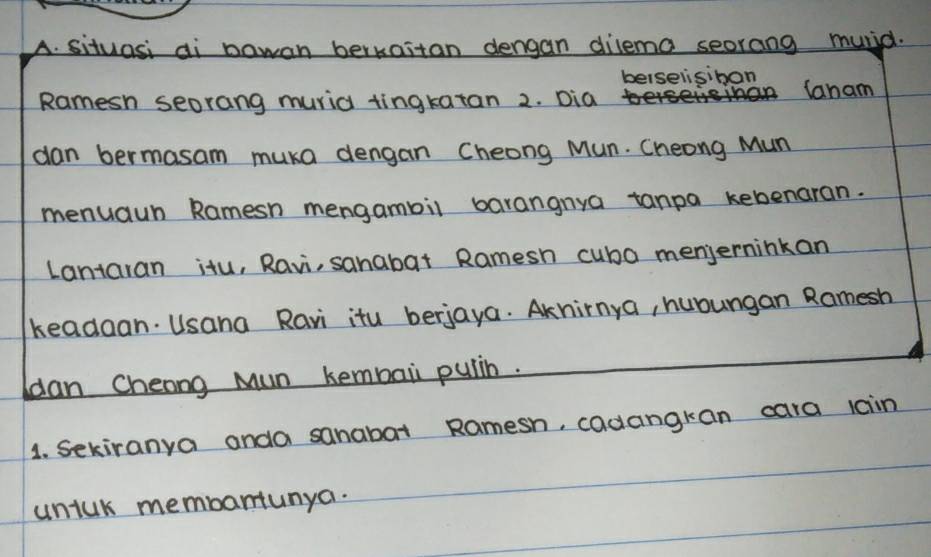 A. Situasi di bawah berkaitan dengan dilema seorang murid.
Ramesh seorang murid tingkatan 2. Dia berselisihan faham
dan bermasam muka dengan Cheong Mun. Cheong Mun
menuduh Ramesh mengambil barangnya tanpa kebenaran.
Lantaran itu, Ravi, sahabat Ramesh cuba menjernihkan
keadaan. Usaha Ravi itu berjaya. Akhirnya, hubungan Ramesh
dan Cheong Mun kembali pulih.
1. Sekiranya anda sahabat Ramesh, cadangkan cara lain
untuk membantunya.